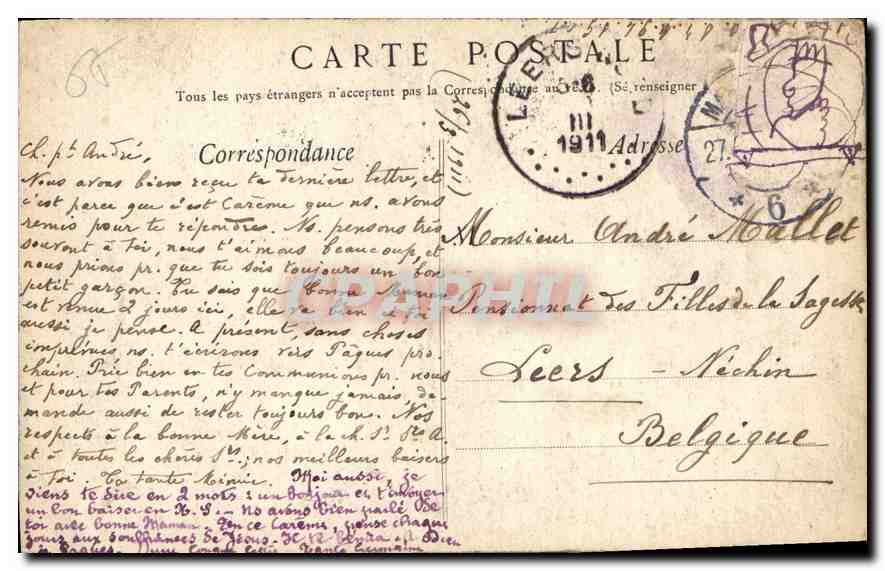 CARTE POSTALE
Tous les pays étrangers n'acceptent pas la Correspondance au (Se renseigner
Correspondance
Adresse
LEERS
III
1911
27.
* 6 *
(26/3 1911)
Ch. pt André,
Nous avons bien reçu ta dernière lettre, et
c'est parce que c'est Carème que ns. avons
remis pour te répondre. Ns. pensons très
souvent à toi, nous t'aimons beaucoup, et
nous prions pr. que tu sois toujours un bon
petit garçon. Tu sais que Bonne Maman
est venue 2 jours ici, elle va bien et toi
aussi je pense. A présent, sans choses
imprévues ns. t'écrirons vers Pâques pro-
chain. Prie bien en tes Communions pr. nous
et pour tes Parents, n'y manque jamais, de-
mande aussi de rester toujours bon. Nos
respects à la bonne Mère, à la ch. Sr. A.
et à toutes les chères Srs, nos meilleurs baisers
à toi. Ta tante Mimie. Moi aussi, je
viens te dire en 2 mots : un bonjour et t'envoyer
un bon baiser en N. S. - ns avons bien parlé de
toi avec bonne Maman. - En ce Carême, pense chaque
jour aux souffrances de Jésus.
Pâques. Une longue lettre. Tante Germaine
Monsieur André Mallet
Pensionnat des Filles de la Sagesse
Leers - Néchin
Belgique
CPAPHIL